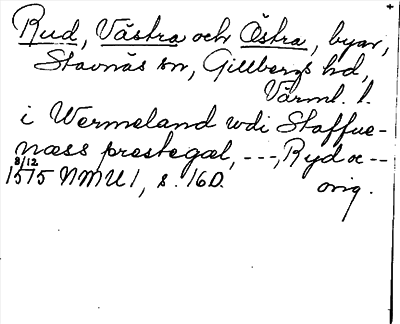 Rud, Västra och Östra, byar,
Stavnäs sn, Gillbergs hd,
Värml. l.
i Wermeland wdi Staffue-
næss prestegæl, ---, Ryd o --
8/12
1575 NMU 1, s. 160. orig.